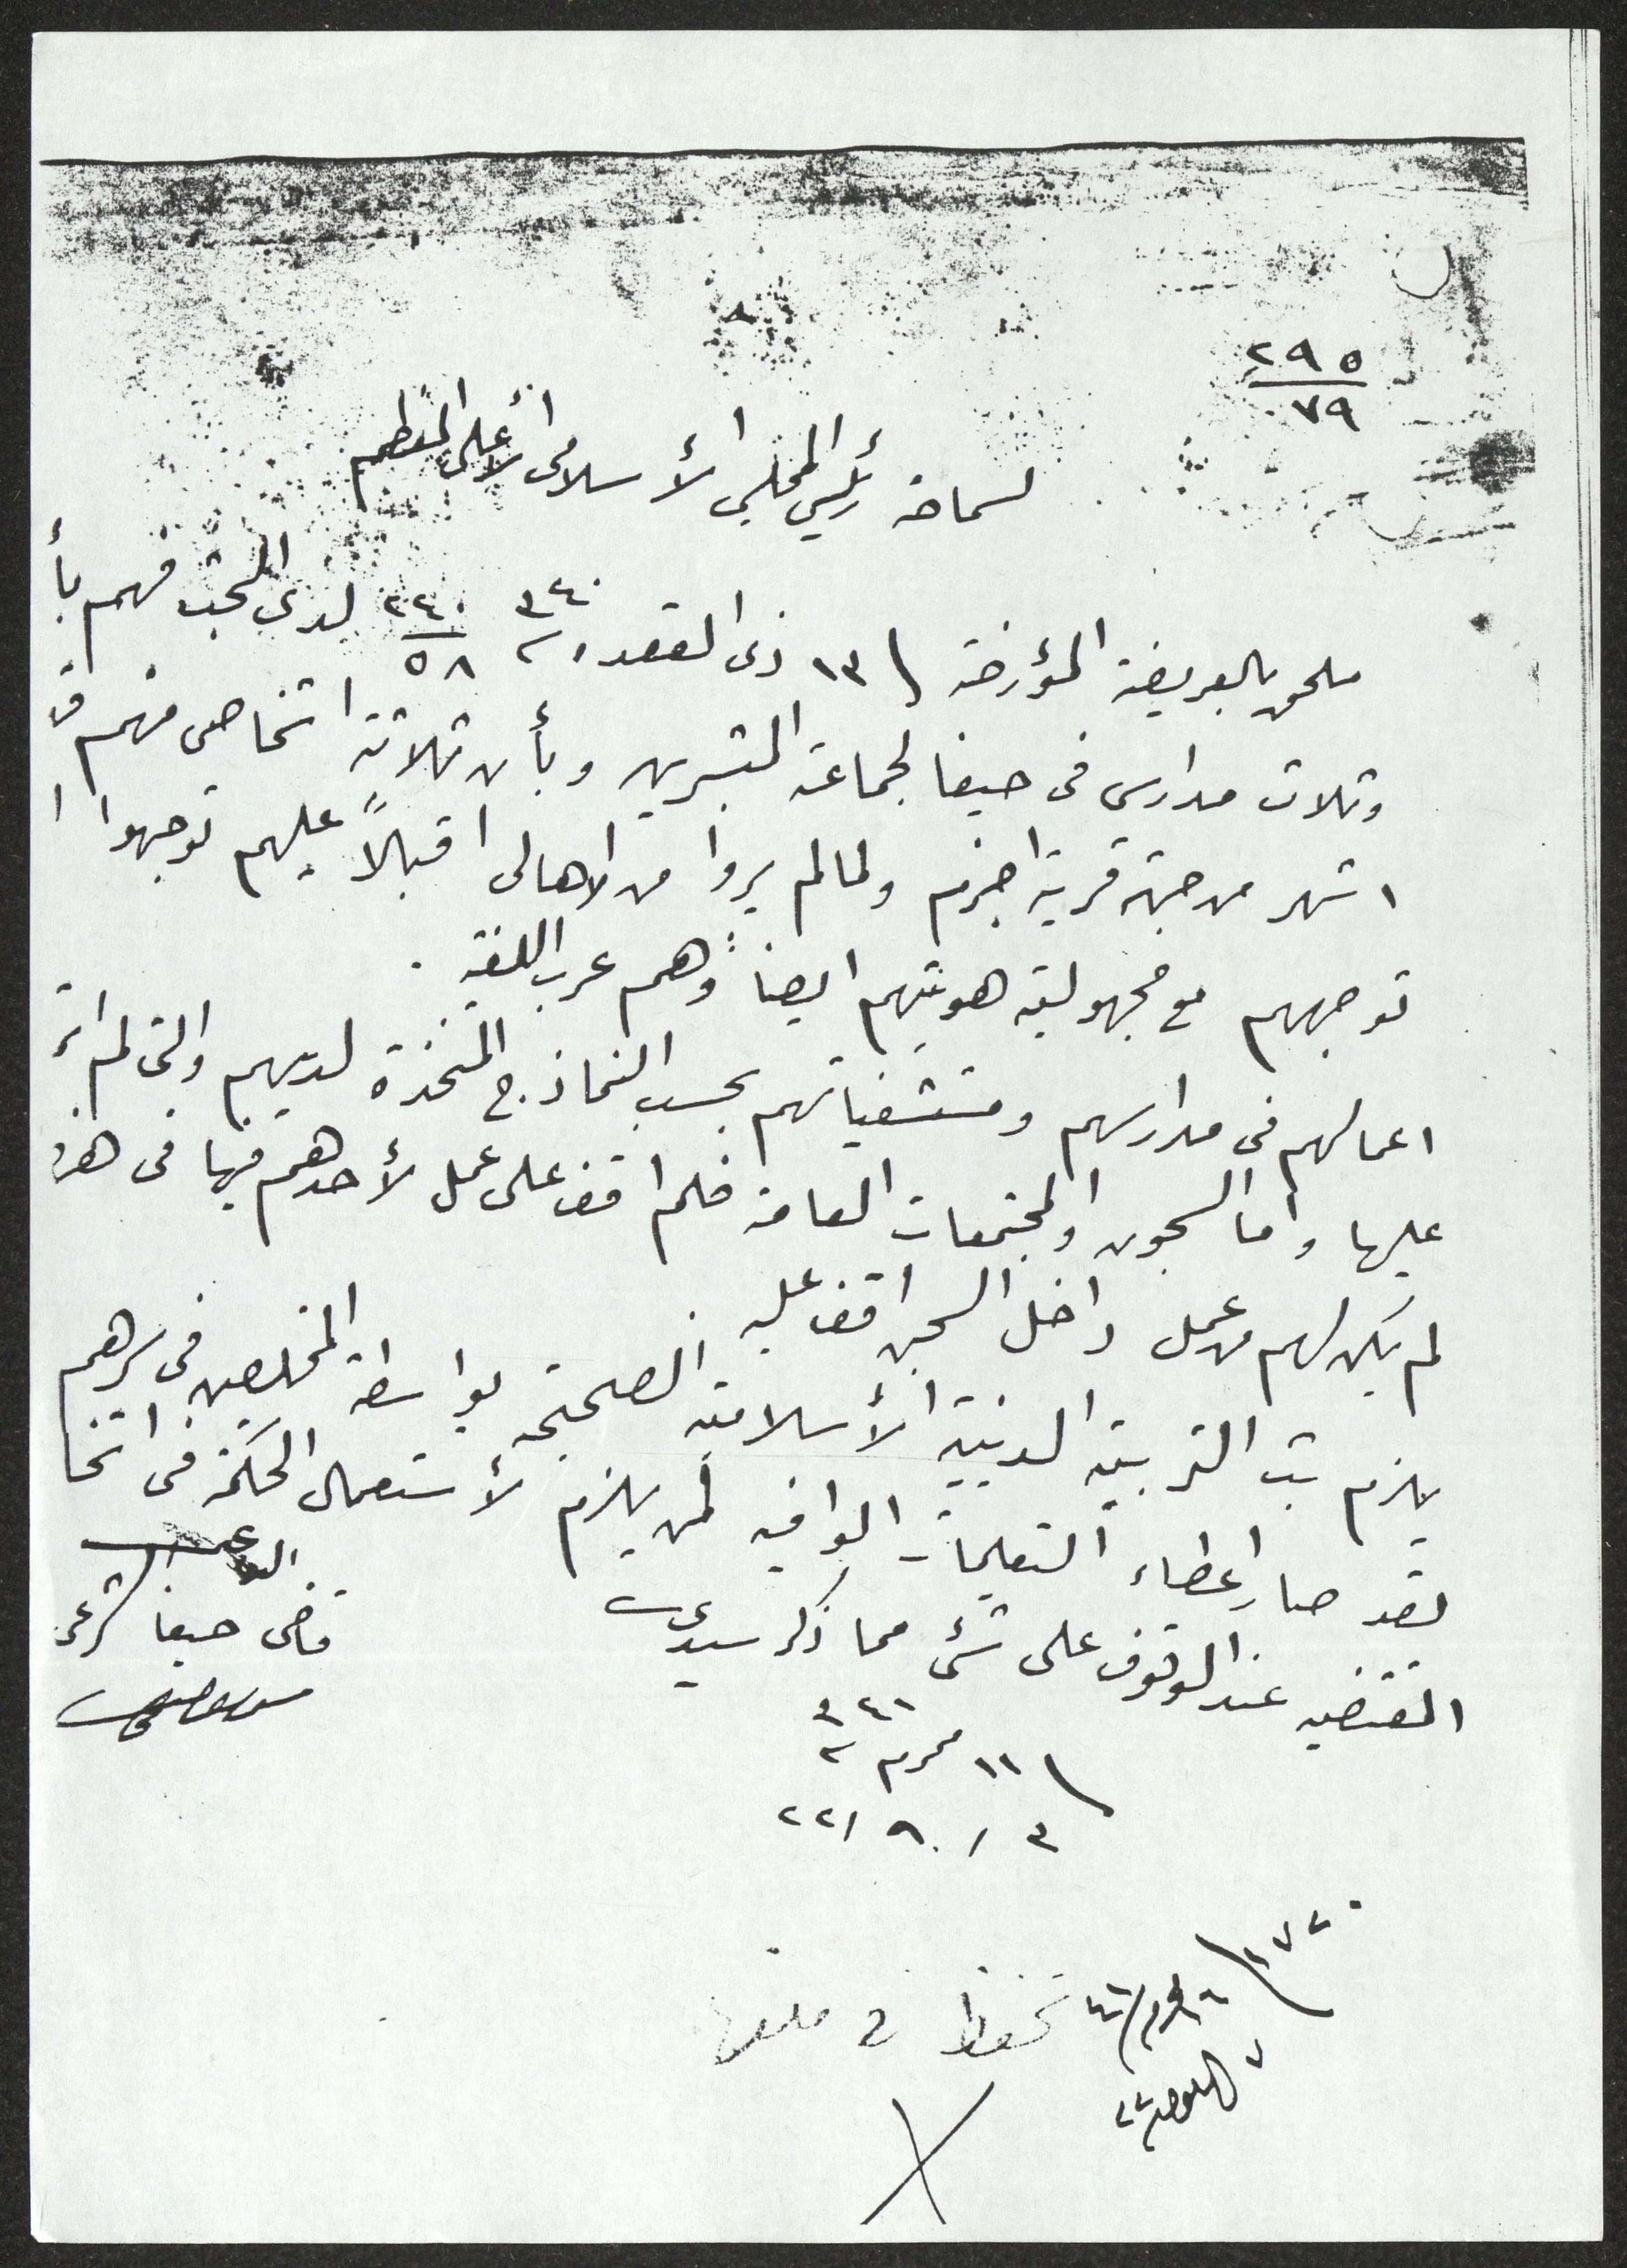 ٢٩٥
٧٩
لسماحة رئيس المجلس الأسلامى الأعلى المعظم
ملحق بالعريضة المؤرخة ١٣ ذى القعده ٣٤٠ ٢٤٠/٥٨ لدى البحث فهم بأ
وثلاث مدارس فى حيفا لجماعة المبشرين وبأن ثلاثة اشخاص منهم
اشهر من جهة قرية اجزم ولما لم يروا من الاهالى اقبالاً عليهم توجهوا ا
توجههم مع مجهولية هويتهم ايضاً وهم عرب اللغة .
اعمالهم فى مدارسهم ومستشفياتهم بحسب النماذج المتخذة لديهم والتى لم
عليها واما السجون والمجتمعات العامة فلم اقف على عمل لأحدهم فيها فى هذه
لم يكن لهم من عمل داخل السجن اقف عليه
يلزم بث التربية الدينية الأسلامية الصحيحة بواسطة المخلصين فى سرهم
لقد صار اعطاء التعليمات الوافيه لمن يلزم لأستعمال الحكمة فى اتخا
المقتضيه عند الوقوف على شئ مما ذكر سيدى
قاضى حيفا الشرعى
١١ محرم ٣٤١
٣ / ٩ / ٢٢
تحفظ في ملفها